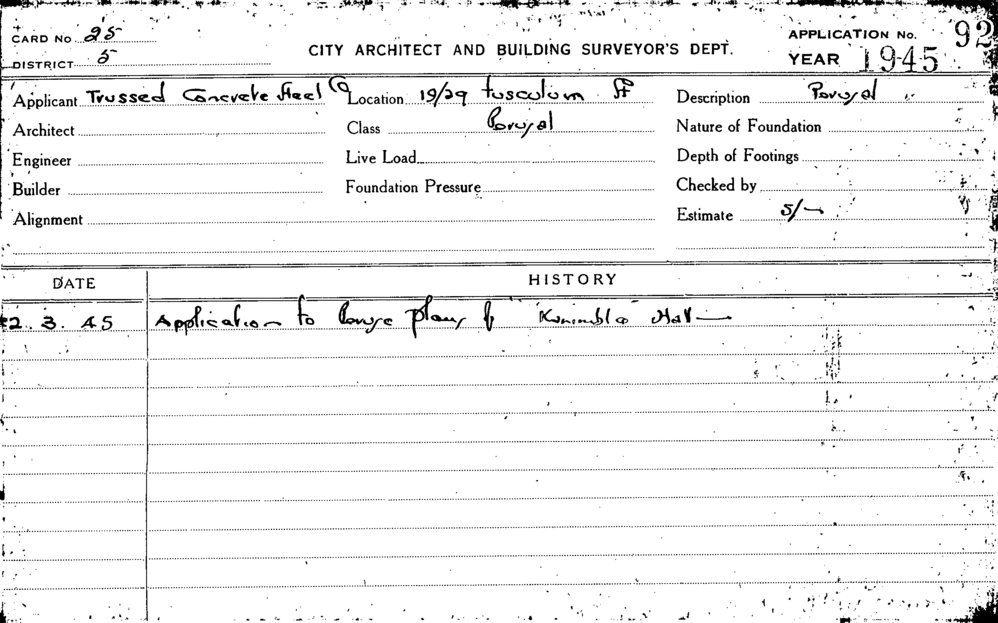 CARD No 25
DISTRICT 5
CITY ARCHITECT AND BUILDING SURVEYOR'S DEPT.
APPLICATION No. 92
YEAR 1945
Applicant Trussed Concrete Steel Co
Location 19/29 Tusculum St
Description Perusal
Architect
Class Perusal
Nature of Foundation
Engineer
Live Load
Depth of Footings
Builder
Foundation Pressure
Checked by
Alignment
Estimate 5/-
DATE
HISTORY
2. 3. 45 Application to Peruse plans of "Kanimbla" Hall